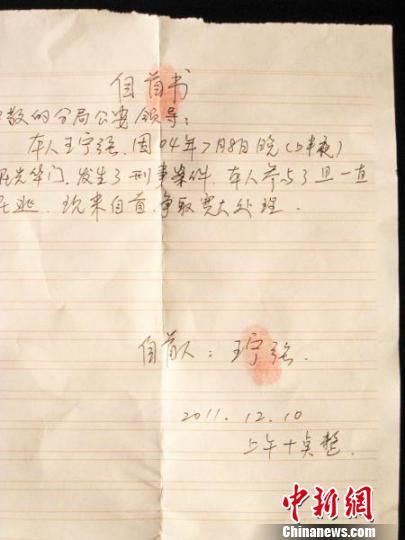 自首书
敬的分局公安领导：
本人王宁强，因04年7月8日晚（上半夜）
光华门，发生了刑事案件，本人参与了且一直
逃，现来自首，争取宽大处理．
自首人：王宁强．
2011．12．10
上午十点整．
中新网
Chinanews.com